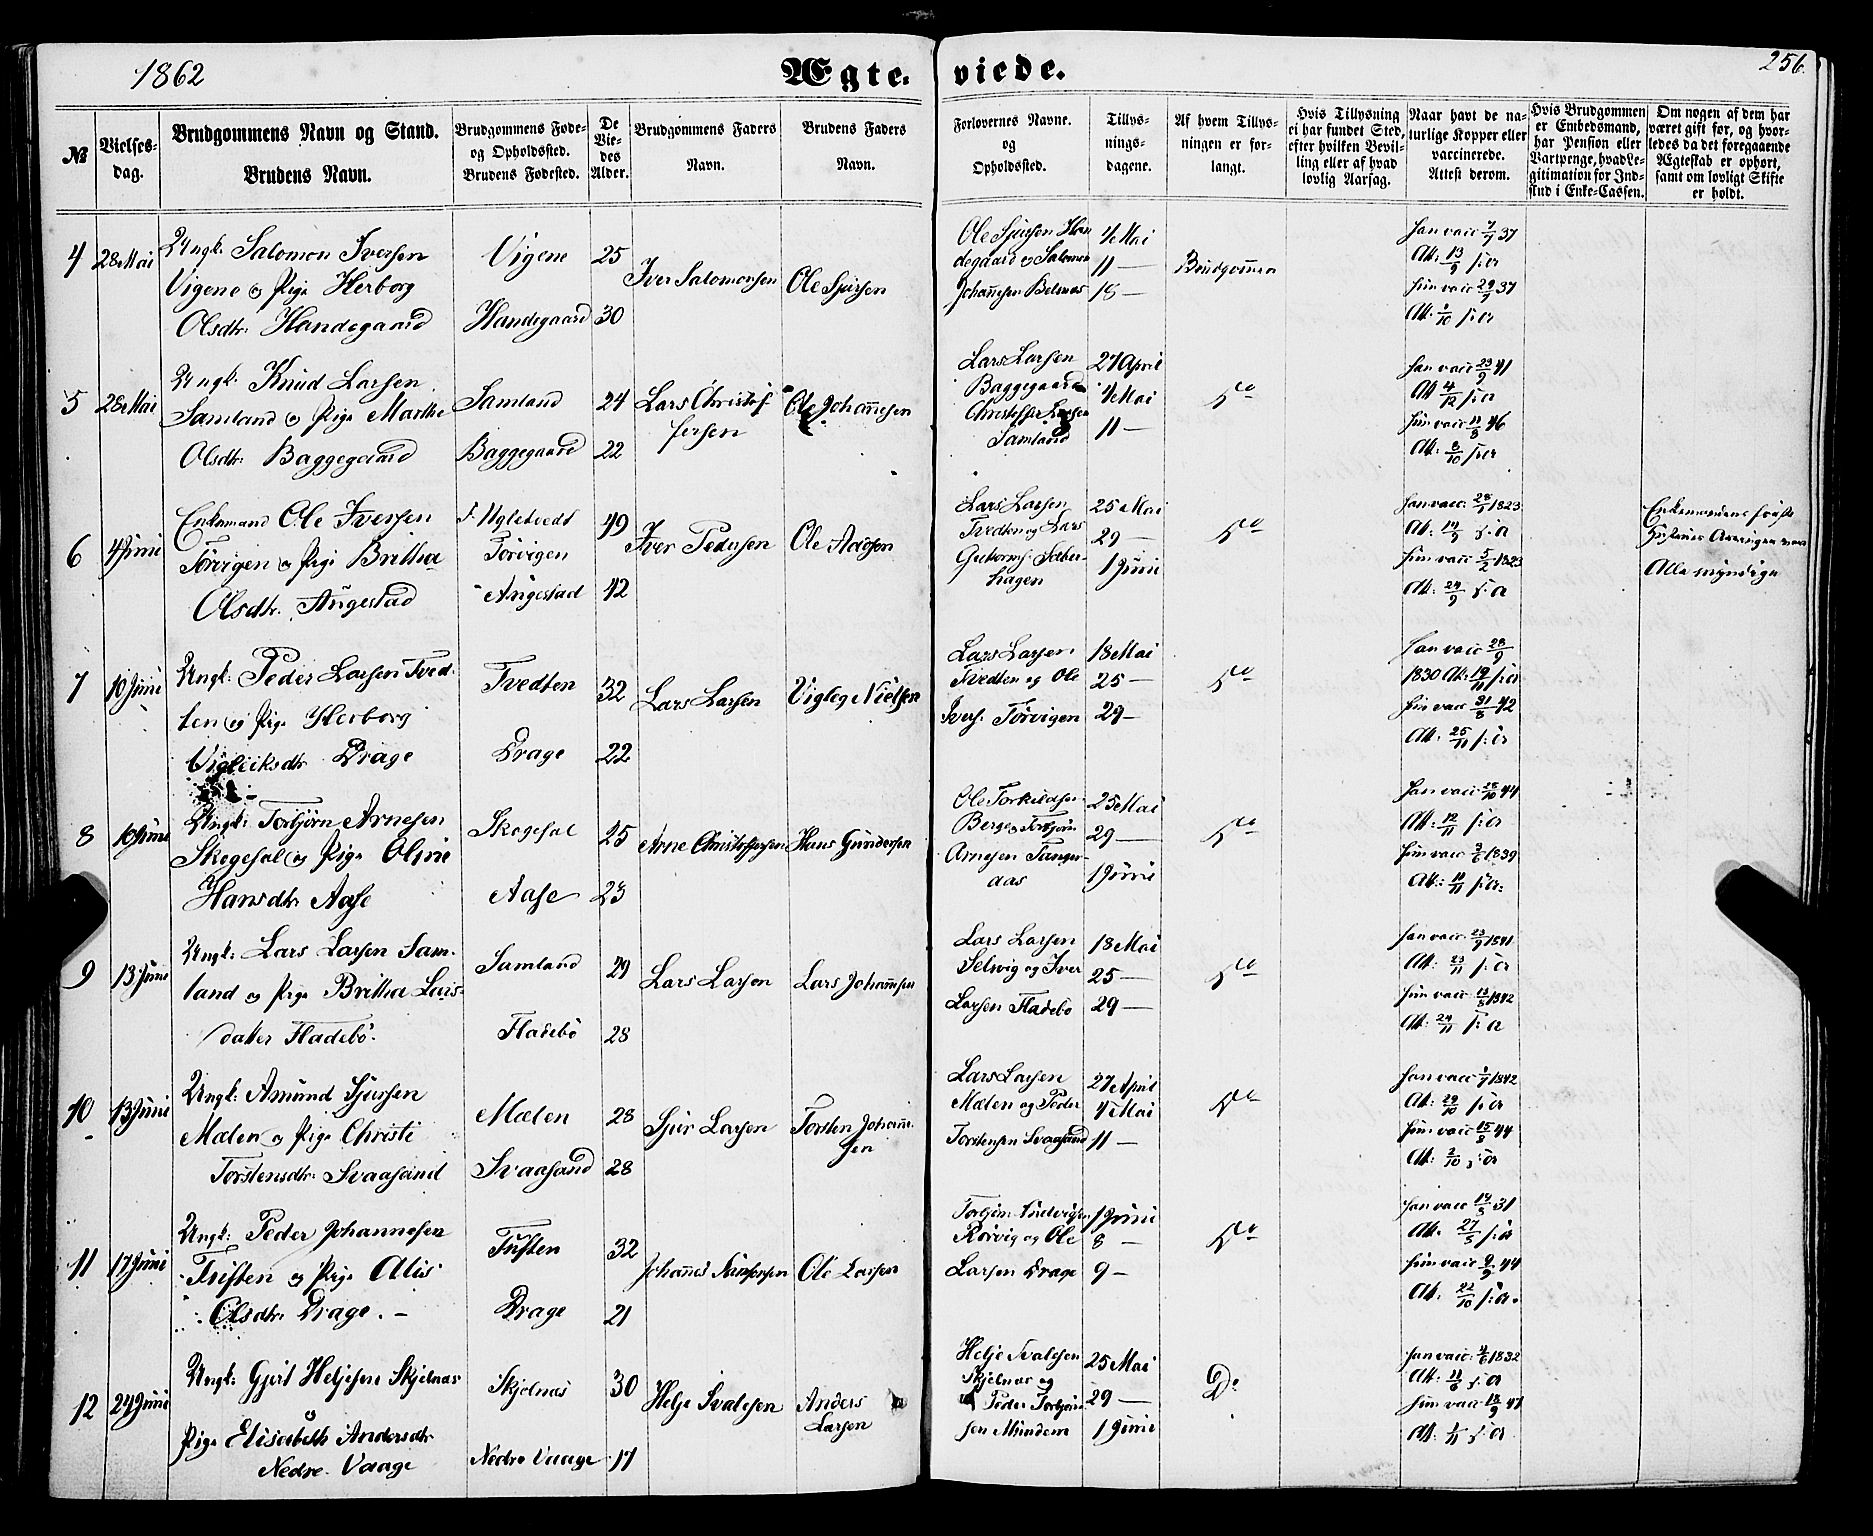 1862
Ægte-
viede.
256
№
Vielses-
dag.
Brudgommens Navn og Stand.
Brudens Navn.
Brudgommens Føde-
og Opholdssted.
Brudens Fødested.
De
Vie-
des
Alder.
Brudgommens Faders
Navn.
Brudens Faders
Navn.
Forlovernes Navne.
og
Opholdssted.
Tillys-
nings-
dagene.
Af hvem Tillys-
ningen er for-
langt.
Hvis Tillysning
ei har fundet Sted,
efter hvilken Bevil-
ling eller af hvad
lovlig Aarsag.
Naar havt de na-
turlige Kopper eller
vaccinerede.
Attest derom.
Hvis Brudgommen
er Embedsmand,
har Pension eller
Vartpenge, hvad Le-
gitimation for Ind-
skud i Enke-Cassen.
Om nogen af dem har
været gift før, og hvor-
ledes da det foregaaende
Ægteskab er ophørt,
samt om lovligt Skifte
er holdt.
4 28 Mai
Ungk. Salomon Iversen
Vigene og Pige Herborg
Olsdtr. Handegaard
Vigene 25
Handegaard 30
Iver Salomonsen
Ole Sjursen
Ole Sjursen Han
degaard og Salomon
Johannesen Belsnes
4 Mai
11 —
18 —
Brudgommen
han vacc 7/7 37
Att. 13/9 s: a
hun vacc 29/7 37
Att. 1/10 s: a
5 28 Mai
Ungk. Knud Larsen
Samland og Pige Marthe
Olsdtr. Baggegaard
Samland 24
Baggegaard 22
Lars Christof
fersen
Ole Johannesen
Lars Larsen
Baggegaard
Christoffer Larsen
Samland
27 April
4 Mai
11 —
Do
han vacc 23/9 41
Att 4/12 s: a
hun vacc 11/8 46
Att: 8/10 s: a
6 4 Juni
Enkemand Ole Iversen
Torvigen og Pige Britha
Olsdtr. Augestad
f. Ugletvedt 49
Torvigen
Augestad 42
Iver Pedersen
Ole Aadsen
Lars Larsen
Tvedten og Lars
Guttorms. Sæter-
hagen
25 Mai
29 —
1 Juni
Do
han vacc. 28/7 1823
Att: 14/5 s: a
hun vacc 5/2 1823
Att: 24/9 s: a
Enkemandens første
Hustrues Arvinger vare
Alle myndige
7 10 Juni
Ungk: Peder Larsen Tved-
ten og Pige Herborg
Vigleiksdtr. Drage
Tvedten 32
Drage 22
Lars Larsen
Vigleg Nielsen
Lars Larsen
Tvedten og Ole
Ivers. Torvigen
18 Mai
25 —
29 —
Do
han vacc 28/9
1830 Att: 19/11 s: a
hun vacc 31/8 42
Att. 25/11 s: a
8 10 Juni
Ungk: Torbjørn Arnesen
Skogesal og Pige Oline
Hansdtr Aase
Skogesal 25
Aase 23
Arne Christophersen
Hans Gundersen
Ole Torkildsen
Berge og Torbjørn
Arnesen Tanger-
aas
25 Mai
29 —
1 Juni
Do
han vacc 28/10 44
Att: 12/11 s: a
hun vacc 3/6 1839
Att: 11/11 s: a.
9 13 Juni
Ungk: Lars Larsen Sam-
land og Pige Britha Lars-
datter Fladebö.
Samland 29
Fladebö 28
Lars Larsen
Lars Johannesen
Lars Larsen
Selvig og Iver
Larsen Fladebö
18 Mai
25 —
29 —
Do
han vacc 23/9 1841
Att: 23/11 s: a
hun vacc 13/8 1842
Att: 24/11 s: a
10 13 Juni
Ungk: Amund Sjursen
Mælen og Pige Christi
Torstensdtr: Svaasand
Mælen 28
Svaasand 28
Sjur Larsen
Torsten Johanne
sen
Lars Larsen
Mælen og Peder
Torstensen Svaasand
27 April
4 Mai
11 —
Do
han vacc 1/7 1842
Att: 29/10 s: a
hun vacc 15/8 44
Att: 2/10 s: a
11 17 Juni
Ungk: Peder Johannesen
Tusten og Pige Alis
Olsdtr. Drage. —
Tusten 32
Drage 21
Ole Larsen
Rörvig og Ole
Larsen Drage
1 Juni
8 —
9 —
Do
han vacc 14/5 31
Att. 27/5 s: a
hun vacc 9/9 44
Att. 22/10 s: a.
12 24 Juni
Ungk: Gjert Heljesen Skjelnæs
Pige Elisabeth Andersdtr.
Nedre Vaage
Skjelnæs 30
Nedre Vaage 17
Helje Svalesen
Anders
Larsen
Helje Svalesen
Skjelnæs og
Peder Torbjörn
sen Mundem
25 Mai
29 —
1 Juni
Do
han vacc: 4/6 1832
Att: 11/6 s: a
hun vacc 18/9 47
Att. 1/11 s: a